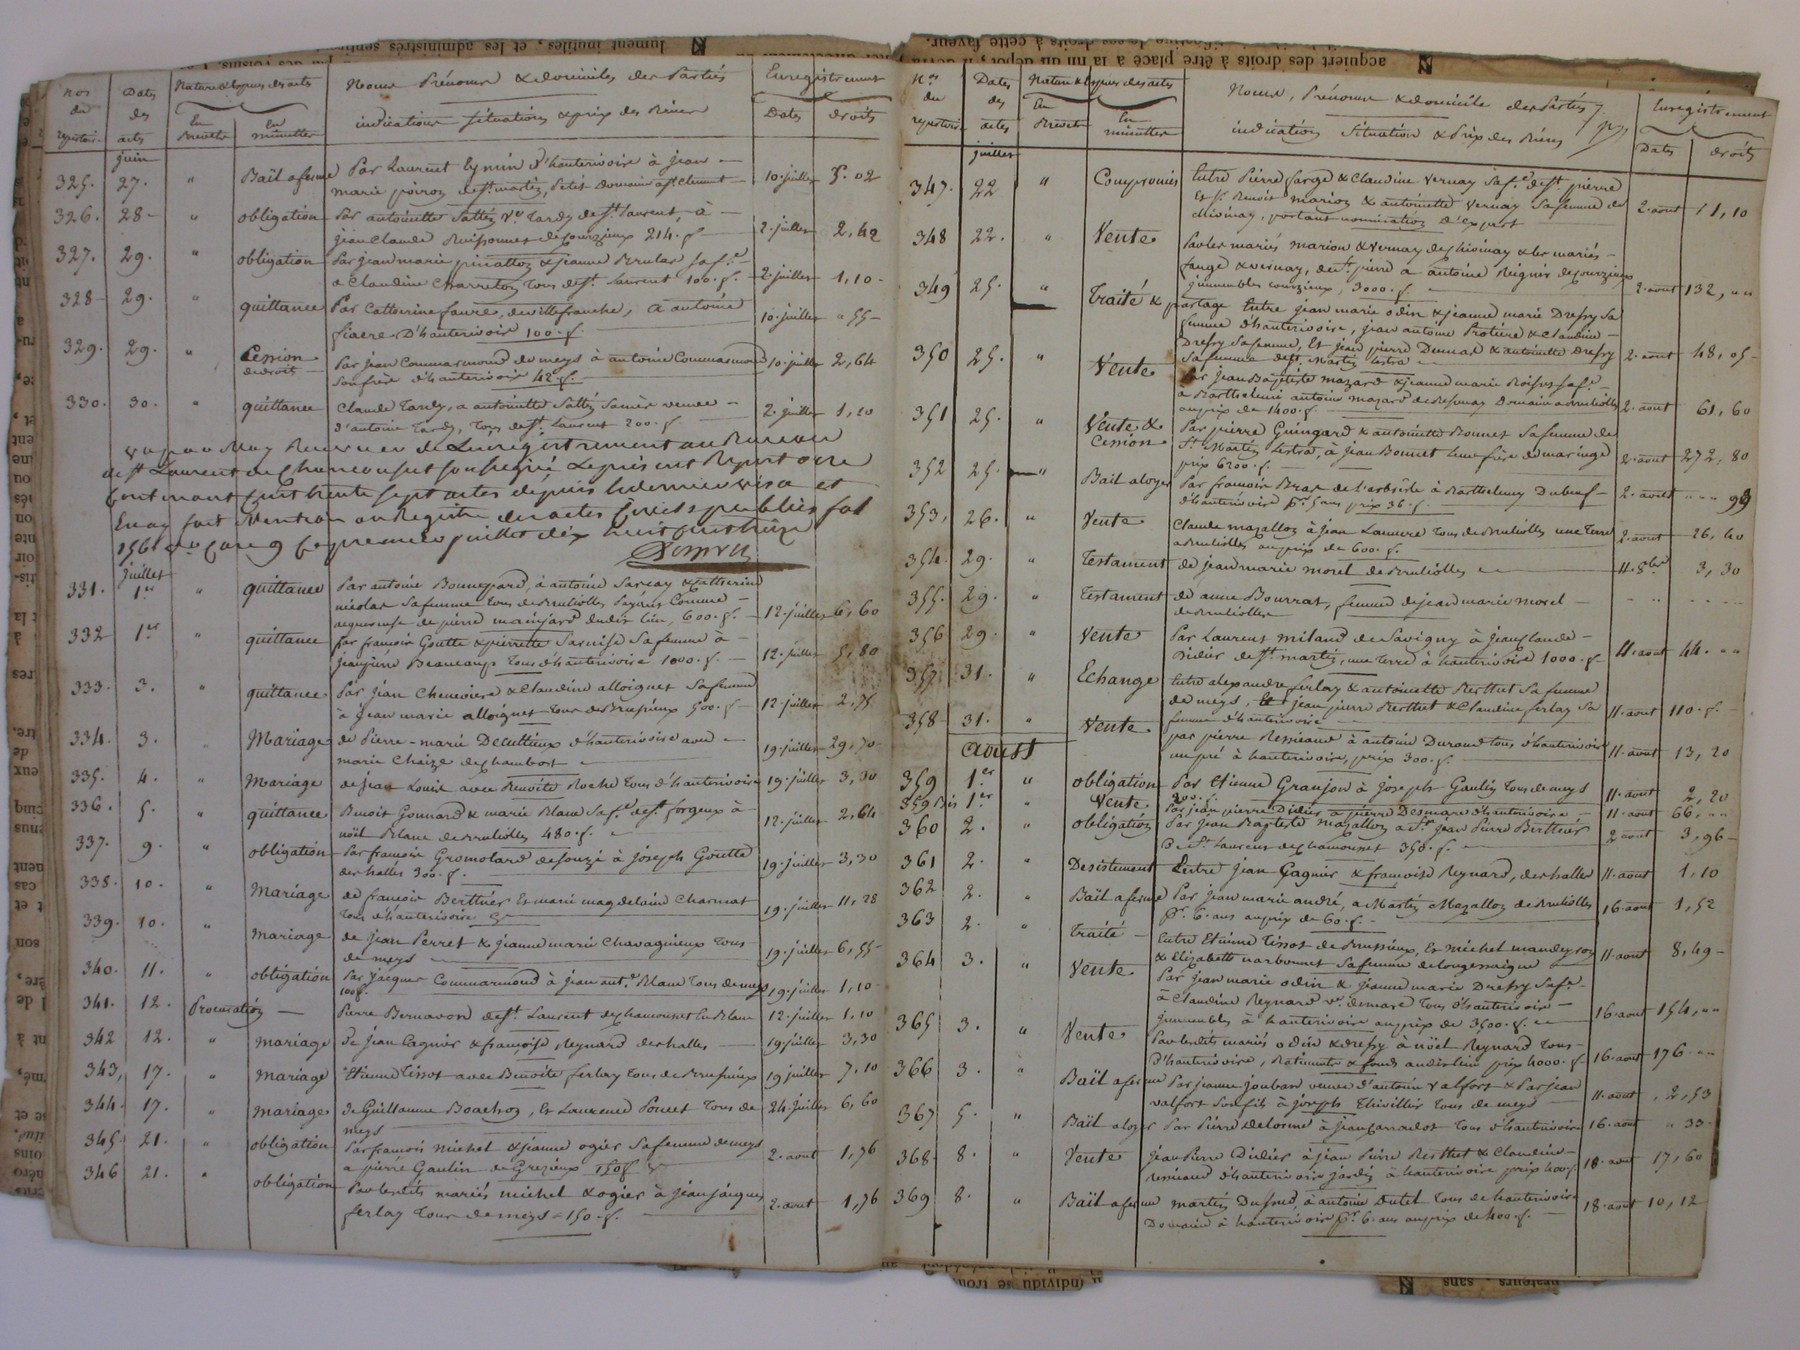 Nos du repertoire
Dates des actes
Nature & Espece des actes
En Brevets
En minuttes
Noms Prénoms & domiciles des Parties
indications situations & prix des Biens
Enregistrement
Dates
droits
juin
325. 27. " Bail a ferme Par Laurent Eymin d'hauterivoire à jean
marie poiroz de st martin, petit Domaine a st Clément 10. juillet 5.02
326. 28 " obligation Par antoinette Sattez Ve Tardy de st Laurent, à
jean Claude Buissonnet de Courzieux 214. f. 2. juillet 2,42
327. 29. " obligation Par jean marie pinattoz & jeanne Brulas sa fe
a Claudine Charretoz Tous de st Laurent 100. f. 2. juillet 1,10
328 29. " quittance Par Catherine faure, de villefranche, a antoine
fiacre D'hauterivoir 100. f. 10. juillet " 55
329. 29. " Cession de droits Par jean Commarmond de meys à antoine Commarmond
son frère d'hauterivoir 42. f. 10. juillet 2,64
330. 30. " quittance Claude Tardy, a antoinette Sattez sa mère veuve
d'antoine Tardy, Tous de st Laurent 200. f. 2. juillet 1,10
de st Laurent de Chamousset soussigné, Le présent Repertoire
Contenant trente sept actes depuis le dernier visa et
En ay fait Mention au Registre des actes Civils publics fol
156
juillet
331. 1er " quittance Par antoine Bonnepard, à antoine Sarcay & Catherine
nicolas sa femme tous de Brulioles, Payant Comme
acquereur de pierre mainjard dudit lieu, 600. f. 12. juillet 6,60
332 1er " quittance par françois Goutte & pierrette sa femme à
jean pierre Beaucamp Tous d'hauterivoire 1000. f. 12. juillet 5,80
333. 3. " quittance Par jean Cheneviere & Claudine alloignet sa femme
à jean marie alloignet Tous de Brussieux 500. f. 12. juillet 2,75
334. 3. " Mariage de Pierre-marie Decultieux d'hauterivoire avec
marie Chaize de chambost 19. juillet 29.70
335. 4. " Mariage de jean Louis avec Benoite Roche Tous d'hauterivoire 19. juillet 3,30
336. 5. " quittance Benoit Gonnard & marie Blanc sa fe de st forgeux à
noël Blanc de Brulioles 480. f. 12. juillet 2,64
337. 9. " obligation Par françois Gromolard de Souzi à joseph Goutte
des halles 300. f. 19. juillet 3,30
338. 10. " Mariage de françois Berthier Et marie magdelaine Charnat
Tous d'hauterivoire 19. juillet 11,28
339. 10. " Mariage de jean Perret & jeanne marie Chavagnieux Tous
de meys 19. juillet 6,55
340. 11. " obligation Par jacques Commarmond à jean ant.e Blanc Tous de meys
100 f. 19. juillet 1,10
341. 12. Procuration Pierre Bernavon de st Laurent de Chamousset En Blanc 12. juillet 1,10
342 12. " mariage De jean Cagnier & françoise Reynard des halles 19 juillet 3,30
343, 17. " mariage Etienne Tissot avec Benoite ferlay tous de Brussieux 19 juillet 7,10
344. 17. " mariage De Guillaume Boachoz, Et Laurence Poncet Tous de
meys 24. juillet 6,60
345. 21. " obligation Par françois michel & jeanne ogier sa femme de meys
a pierre Gaulin de Grezieux 150 f. 2. aout 1,76
346 21. " obligation Par lesdits mariés michel & ogier à jean jacques
ferlay Tous de meys 150. f. 2. aout 1,76
Nos du repertoire
Dates des actes
Nature & Espece des actes
En Brevets
En minuttes
Noms, Prénoms & domicile des Parties
indication Situation & Prix des Biens
Enregistrement
Dates
droits
juillet
347. 22 " Compromis Entre Pierre farge & Claudine Vernay sa fe de st pierre
Et Sr. Benoit marion & antoinette Vernay sa femme de
chivinay, portant nomination d'Expert 2. aout 11,10
348 22. " Vente Par les mariés marion & Vernay de chivinay & les mariés
farge & vernay, de st pierre a antoine Regnis de courzieux
immeubles courzieux, 3000. f. 2. aout 132, " "
349 25. " Traité & partage Entre jean marie odin & jeanne marie Drefsy sa
femme d'hauterivoire, jean antoine Protiere & Claudine
Drefsy sa femme, Et jean pierre Dumas & antoinette Drefsy
sa femme de st Martin Lestra 2. aout 48,05
350 25. " Vente Par Jean Baptiste mazard & jeanne marie sa fe
a Barthelemi antoine mazard de Domaine a Brulioles
au prix de 1400. f. 2. aout 61,60
351 25. " Vente & Cession Par pierre Guingard & antoinette Bonnet sa femme de
St. Martin Lestra, à jean Bonnet leur frère de maringe
prix 6200. f. 2. aout 272,80
352 25. " Bail a loyer Par françois Bras de l'arbresle à Barthelemy Dubeuf
d'hauterivoir pr. 5 ans prix 36. f. 2. aout " " 99
353, 26. " Vente Claude mazalloz à jean Lauvure Tous de Brulioles une Terre
a Brulioles au prix de 600. f. 2. aout 26,40
354. 29. " Testament de jean marie morel de Brulioles 11. 8bre 3,30
355. 29. " Testament de anne Bourrat, femme de jean marie morel
de Brulioles
356 29. " Vente Par Laurent miland de Savigny à jean Claude
Didier de st martin, une Terre à hauterivoire 1000. f. 11. aout 44. " "
357 31. " Echange Entre alexandre ferlay & antoinette Berthet sa femme
de meys, & jean pierre Berthet & Claudine ferlay sa
femme d'hauterivoire 11. aout 110. f.
358 31. " Vente par pierre Remiand à antoine Durand tous d'hauterivoire
un pré à hauterivoire, prix 300. f. 11. aout 13,20
Aoust
359 1er " obligation Par Etienne Granjon à joseph Gaulin Tous de meys
200. f. 11. aout 2,20
359 Bis 1er " Vente Par jean pierre Didier a pierre Desmare d'hauterivoire 11. aout 66, " "
360 2. " obligation Par Jean Baptiste Mazalloz a Sr jean Pierre Berthier
de St Laurent de chamousset 356. f. 2 aout 3,96
361 2. " Desistement Entre jean Gagnier & françoise Reynard, des halles 11. aout 1,10
362 2. " Bail a ferme Par jean marie andré, a Martin Mazalloz de Brulioles
pr. 6. ans au prix de 60. f. 16. aout 1,52
363 2. " Traité Entre Etienne Tissot de Brussieux, Et michel mandeysoz
& Elizabeth narbonnet sa femme de longessaigne 11. aout 8,49
364 3. " Vente Par jean marie odin & jeanne marie Drefsy sa fe
à Claudine Reynard ve demare Tous d'hauterivoir
immeubles à hauterivoire au prix de 3500. f. 16. aout 154, " "
365 3. " Vente Par lesdits mariés odin & drefsy à noël Reynard Tous
d'hauterivoire, Batiments & fonds audit lieu prix 4000. f. 16. aout 176 " "
366 3. " Bail a ferme Par jeanne joubard veuve d'antoine valfort & Par jean
valfort son fils à joseph Thivillier Tous de meys 11. aout 2,53
367 5. " Bail a loyer Par Pierre Delorme à jean Carradot Tous d'hauterivoire 16. aout " 33
368. 8. " Vente Jean Pierre Didier à jean Pierre Berthet & Claudine
Remiand d'hauterivoire jardin à hauterivoire prix 400. f. 18. aout 17,60
369 8. " Bail a ferme martin Dufsud, à antoine Dutel Tous de hauterivoire
Domaine à hauterivoire pr. 6. ans au prix de 400. f. 18. aout 10,12